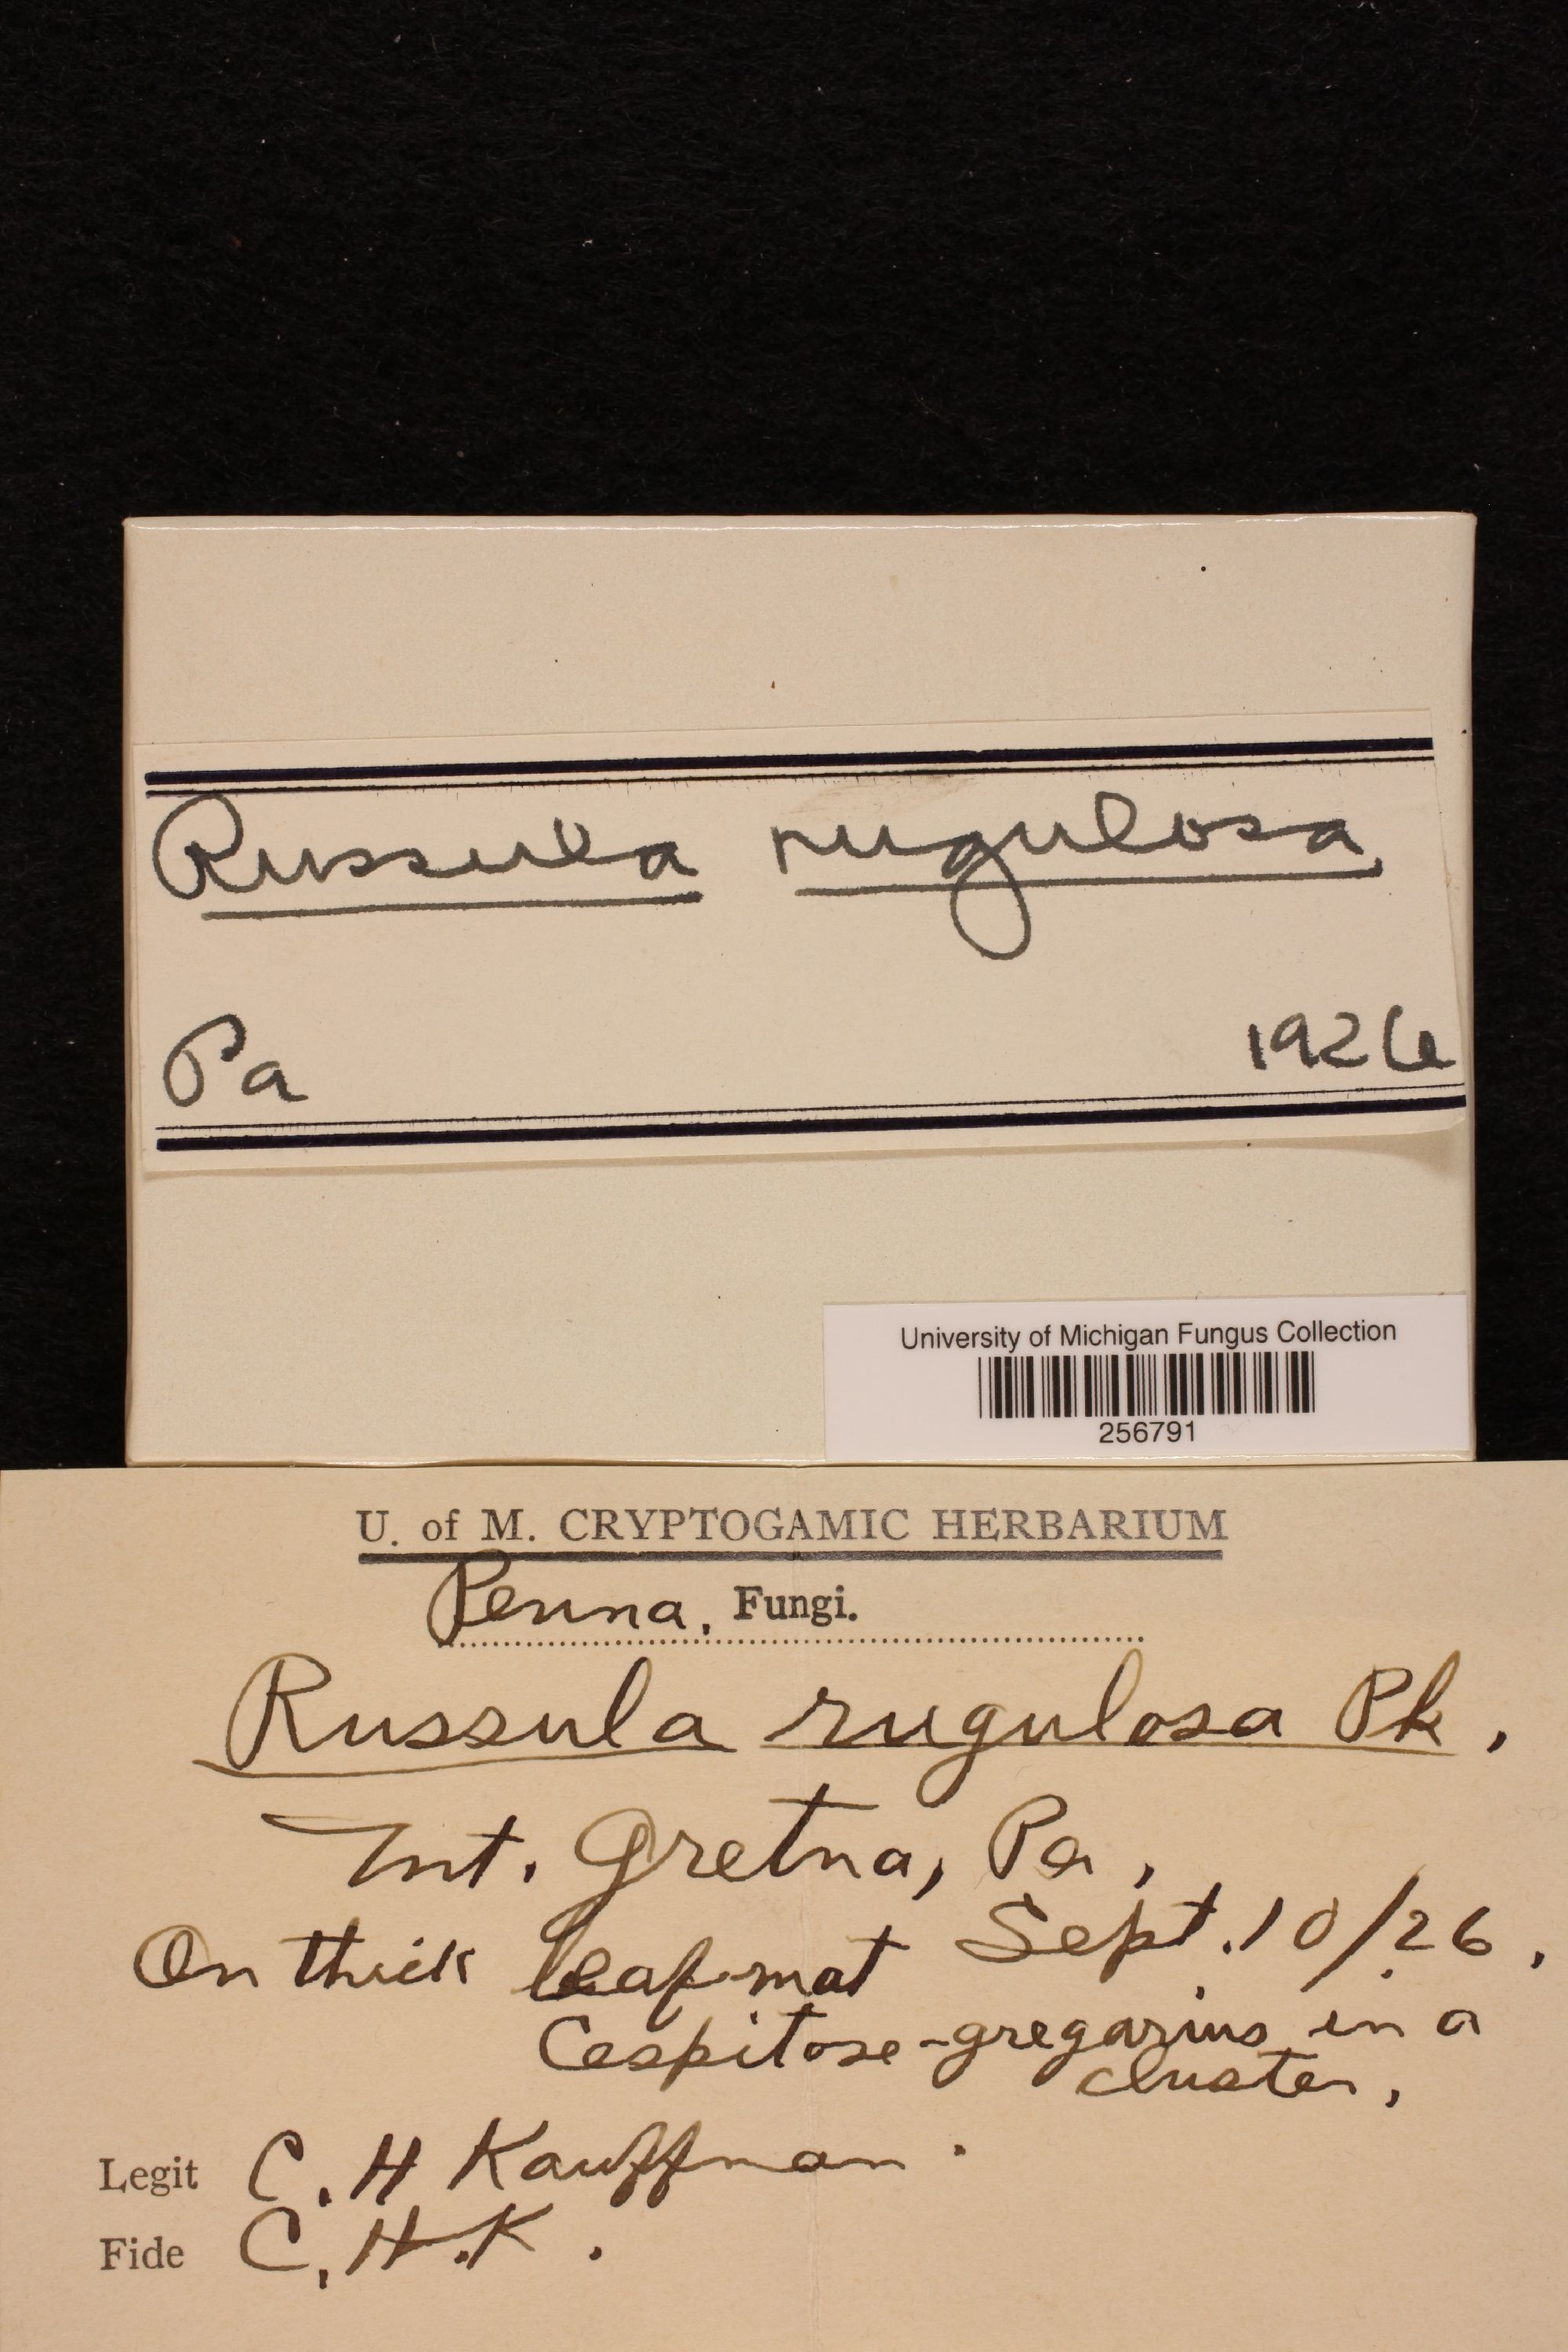 Russula rugulosa
Pa 1926
University of Michigan Fungus Collection
256791
U. of M. CRYPTOGAMIC HERBARIUM
Penna. Fungi.
Russula rugulosa Pk.
Mt. Gretna, Pa.
On thick leaf-mat Sept. 10/26.
Cespitose-gregarius in a
cluster,
Legit C. H Kauffman.
Fide C. H. K.